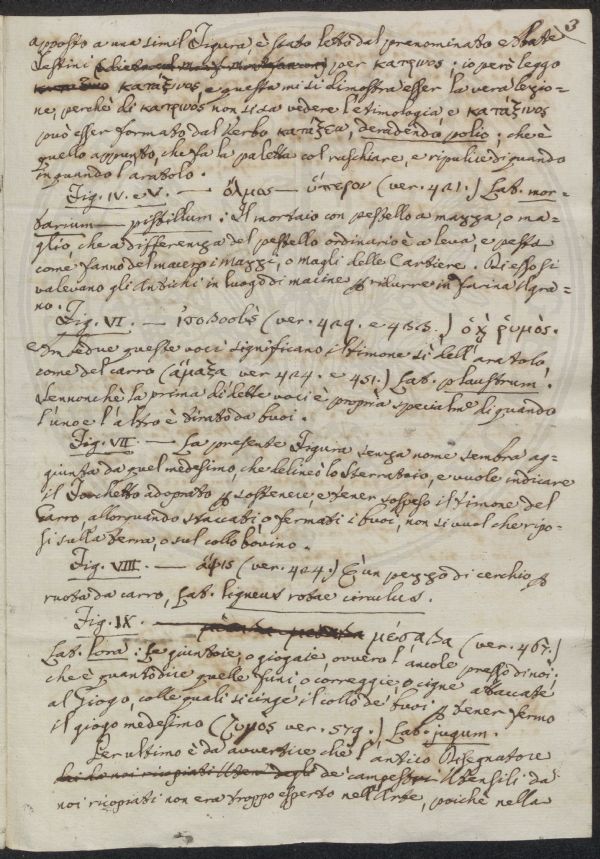 3
apposto a una simil Figura, è stato letto dal prenominato Abate
Sestini per κατρινος: io però leggo
καταξινος, e questa mi si dimostra esser la vera lezio-
ne, perchè di κατρινος non si sa vedere l'etimologia, e καταξινος
può esser formato dal verbo καταξεω, deradendo polio; che è
quello appunto, che fa la paletta col raschiare, e ripulire di quando
in quando l'aratolo.
Fig. IV. e V. — ὅλμος — ὕπερον (ver. 421.) Lat. mor-
tarium — pistillum: Il mortaio con pestello a mazza, o ma-
glio che a differenza del pestello ordinario è a leva, e pesta
come fanno del macero i mazzi, o magli delle Cartiere. Di esso si
valevano gli Antichi in luogo di macine p ridurre in farina il gra-
no.
Fig. VI. — ἱστοβοεὺς (ver. 429. e 433.) ὁ χ ῥυμὸς.
e due queste voci significano il timone sì dell'aratolo,
come del carro (ἅμαξα ver 424. e 451.) Lat. plaustrum.
Sennonchè la prima di dette voci è propria specialmte di quando
l'uno e l'altro è tirato da buoi.
Fig. VII. — La presente Figura senza nome sembra ag-
giunta da quel medesimo, che delineò lo sterratoio, e vuole indicare
il Forchetto adoprato p sostenere, e tener sospeso il timone del
Carro, allorquando staccati, o fermati i buoi, non si vuol che ripo-
si sulla terra, o sul collo bovino.
Fig. VIII. — ἄψις (ver. 424.) È un pezzo di cerchio p
ruota da carro, Lat. ligneus rotae circulus.
Fig. IX. — μέσαβα (ver. 467.)
Lat. lora: Le giuntoie, o giogaie, ovvero l'ancole presso di noi;
che è quanto dire quelle funi, o correggie, o cigne attaccate
al Giogo, colle quali si cinge il collo de' buoi p tener fermo
il giogo medesimo (ζυμος ver. 579.) Lat. jugum.
Per ultimo è da avvertire che l'antico Disegnatore
de' campestri Utensili da
noi ricopiati non era troppo esperto nell'Arte, poichè nella